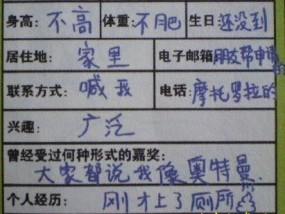 身高: 不高 体重: 不肥 生日 还没到
居住地: 家里 电子邮箱 朋友帮申请的
联系方式: 喊我 电话: 摩托罗拉的
兴趣: 广泛
曾经受过何种形式的嘉奖:
大家都说我像奥特曼
个人经历: 刚才上了厕所